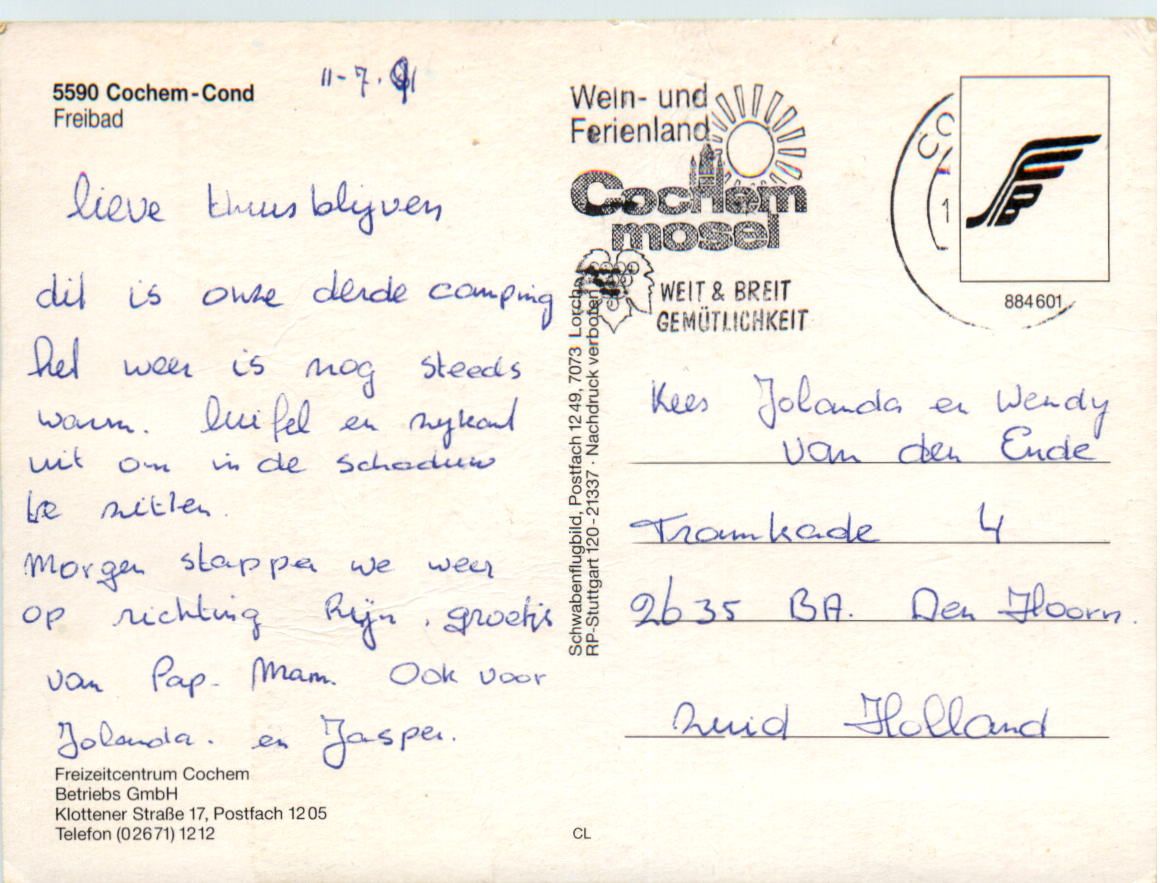 5590 Cochem-Cond
Freibad
11-7-91
lieve thuisblijven
dit is onze derde camping
het weer is nog steeds
warm. luifel en zijkant
uit om in de schaduw
te zitten.
Morgen stappen we weer
op richting Rijn. groetjs
van Pap. Mam. Ook voor
Jolanda. en Jasper.
Freizeitcentrum Cochem
Betriebs GmbH
Klottener Straße 17, Postfach 1205
Telefon (02671) 1212
Schwabenflugbild, Postfach 1249, 7073 Lorch
RP-Stuttgart 120-21337 · Nachdruck verboten
CL
Wein- und
Ferienland
Cochem
mosel
WEIT & BREIT
GEMÜTLICHKEIT
CO
1
884601
Kees Jolanda en Wendy
van den Ende
Tramkade 4
2635 BA. Den Hoorn.
Zuid Holland